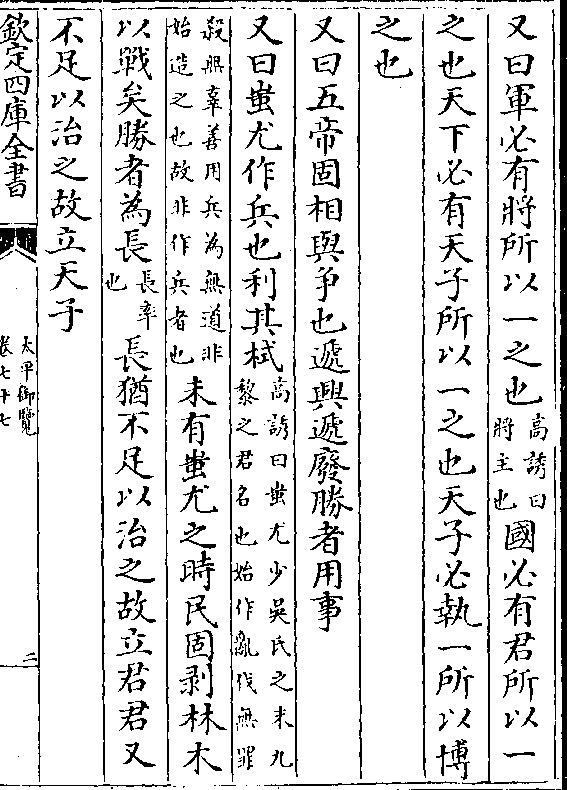 又曰軍必有將所以一之也高誘曰將主也國必有君所以一
之也天下必有天子所以一之也天子必執一所以摶
之也
又曰五帝固相與争也遞興遞廢勝者用事
又曰蚩尤作兵也利其栻高誘曰蚩尤少吴氏之末九黎之君名也始作亂伐無罪
殺無辜善用兵為無道非始造之也故非作兵者也未有蚩尤之時民固剥林木
以戰矣勝者為長長率也長猶不足以治之故立君君又
不足以治之故立天子
欽定四庫全書
太平御覽
卷七十七
二